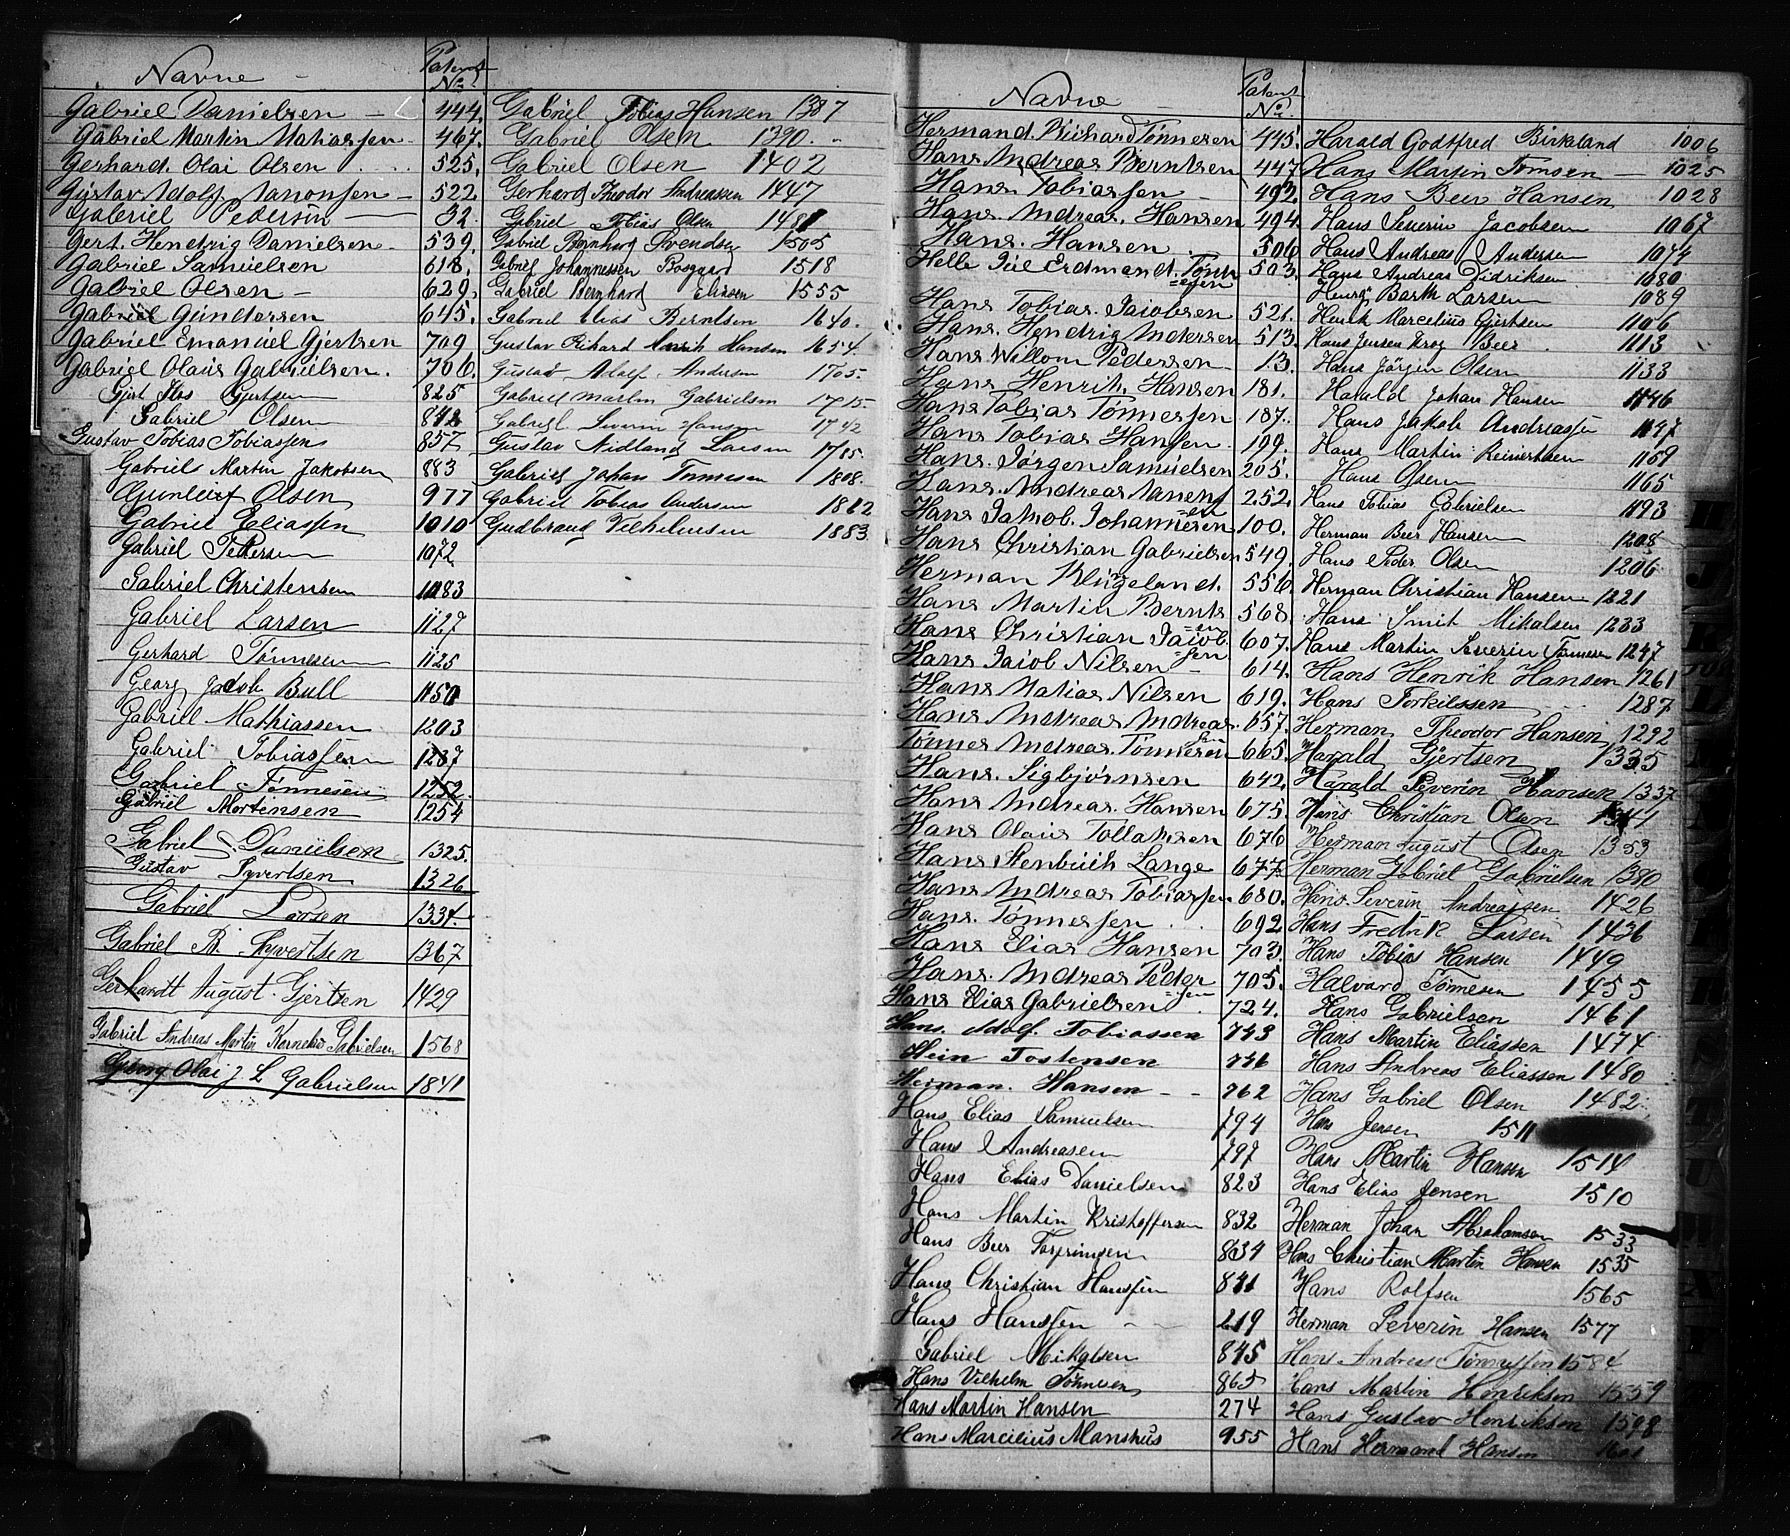 Navne
Patent
No
Gabriel Danielsen 444.
Gabriel Martin Matiassen 467.
Gerhard. Olai Olsen 525.
Gustav Adolf Aanonsen 522.
Gabriel Pedersen 32.
Gert. Hendrig Danielsen 539.
Gabriel Samuelsen 618.
Gabriel Olsen 629.
Gabriel Gundersen 645.
Gabriel Emanuel Gjertsen 709
Gabriel Olaus Gabrielsen. 706.
Gjert Gjertsen 825
Gabriel Olsen 842
Gustav Tobias Tobiassen 857
Gabriel Martin Jakobsen 883
Gunleif Olsen 977
Gabriel Eliassen 1010
Gabriel Pettersen 1072
Gabriel Christensen 1083
Gabriel Larsen 1127
Gerhard Tønnesen 1125
Georg Jacob Bull 1150
Gabriel Mathiassen 1203
Gabriel Tobiassen 1237
Gabriel Tønnesen 1252
Gabriel Mortensen 1254
Gabriel Danielsen 1325.
Gustav Syvertsen 1326
Gabriel Larsen 1334.
Gabriel B. Syvertsen 1367
Gerhardt August Gjertsen 1429
Gabriel Andreas Martin Kornelius Gabrielsen 1568
Georg Olai J L Gabrielsen 1841
Gabriel Tobias Hansen 1387
Gabriel Olsen 1390.
Gabriel Olsen 1402
Gerhard Theodor Andreassen 1447
Gabriel Tobias Olsen 1481
Gabriel Bernhard Svendsen 1505
Gabriel Johannessen Bosgaard 1518
Gabriel Bernhard Eliasen 1555
Gabriel Elias Berntsen 1640.
Gustav Rikard Henrik Hansen 1654.
Gustav Adolf Andersen 1705.
Gabriel Martin Gabrielsen 1715.
Gabriel Severin Hansen 1742
Gustav Nidland Larsen 1785.
Gabriel Johan Tønnesen 1808.
Gabriel Tobias Andersen 1862
Gudbrand Vilhelmsen 1883
Navne
Patent
No
Hermand. Richard Tønnesen 445.
Hans Andreas Berntsen 447
Hans. Tobiassen 492.
Hans. Andreas. Hansen 494.
Hans. Hansen 506
Helle Juel Erdmand. Tønnesen 503.
Hans Tobias Jacobsen 521.
Hans. Hendrig Andersen 513.
Hans Willom Pedersen 13.
Hans Henrik Hansen 181.
Hans Tobias Tønnessen 187.
Hans Tobias Hansen. 199.
Hans. Jørgen Samuelsen 205.
Hans. Andreas Aanensen 252.
Hans Jakob. Johannesen 100.
Hans Christian Gabrielsen 549.
Herman Klügeland. 556.
Hans Martin Berntsen 568
Hans Christian Jacobsen 607.
Hans Jacob Nilsen 614.
Hans Matias Nilsen 619.
Hans Andreas Andreassen 657.
Tønnes Andreas Tønnesen 665.
Hans. Sigbjørnsen 642.
Hans Andreas. Hansen 675.
Hans Olaus Tollaksen 676
Hans Stenbuch Lange 677.
Hans Andreas Tobiassen 680.
Hans. Tønnessen 692
Hans Elias Hansen 703.
Hans. Andreas Pedersen 705.
Hans Elias Gabrielsen 724.
Hans. Adolf Tobiassen 743
Hein Tostensen 746
Herman. Hansen 762
Hans Elias Samuelsen 794
Hans Andreasen 797
Hans Elias Danielsen 823
Hans Martin Kristoffersen 832
Hans Beer Torjussen 834
Hans Christian Hanssen 841
Hans Hanssen 219
Gabriel Mikalsen 845
Hans Vilhelm Tønnesen 865
Hans Martin Hansen 274
Hans Marcilius Manshus 955
Harald Godtfred Birkeland 1006
Hans Martin Tømsen 1025
Hans Beer Hansen 1028
Hans Severin Jacobsen 1067
Hans Andreas Andersen 1074
Hans Andreas Didriksen 1080
Henrij Barth Larsen 1089
Henrik Marcelius Gjertsen 1106
Hans Jensen Krog Beer 1113
Hans Jørgen Olsen 1133
Harald Johan Hansen 1146
Hans Jakob Andreassen 1147
Hans Martin Reinertsen 1169
Hans Olsen 1165
Hans Tobias Gabrielsen 1193
Herman Beer Hansen 1208
Hans Peder Olsen 1206
Herman Christian Hansen 1221
Hans Smit Mikalsen 1233
Hans Martin Severin Tønnesen 1247
Hans Henrik Hansen 1261
Hans Torkilssen 1287
Herman Theodor Hansen 1292
Harald Gjertsen 1335
Harald Severin Hansen 1337
Hans Christian Olsen 1344
Herman August Olsen 1353
Herman Gabriel Gabrielsen 1380
Hans Severin Andreassen 1426
Hans Fredrik Larsen 1436
Hans Tobias Hansen 1449
Halvard Tønnesen 1455
Hans Gabrielsen 1461
Hans Martin Eliassen 1474
Hans Andreas Eliassen 1480
Hans Gabriel Olsen 1482
Hans Jensen 1511
Hans Martin Hansen 1514
Hans Elias Jensen 1510
Herman Johan Abrahamsen 1533
Hans Christian Martin Hansen 1535
Hans Rolfsen 1565
Herman Severin Hansen 1577
Hans Andreas Tønnessen 1584
Hans Martin Henriksen 1559
Hans Gustav Henriksen 1598
Hans Hermand Hansen